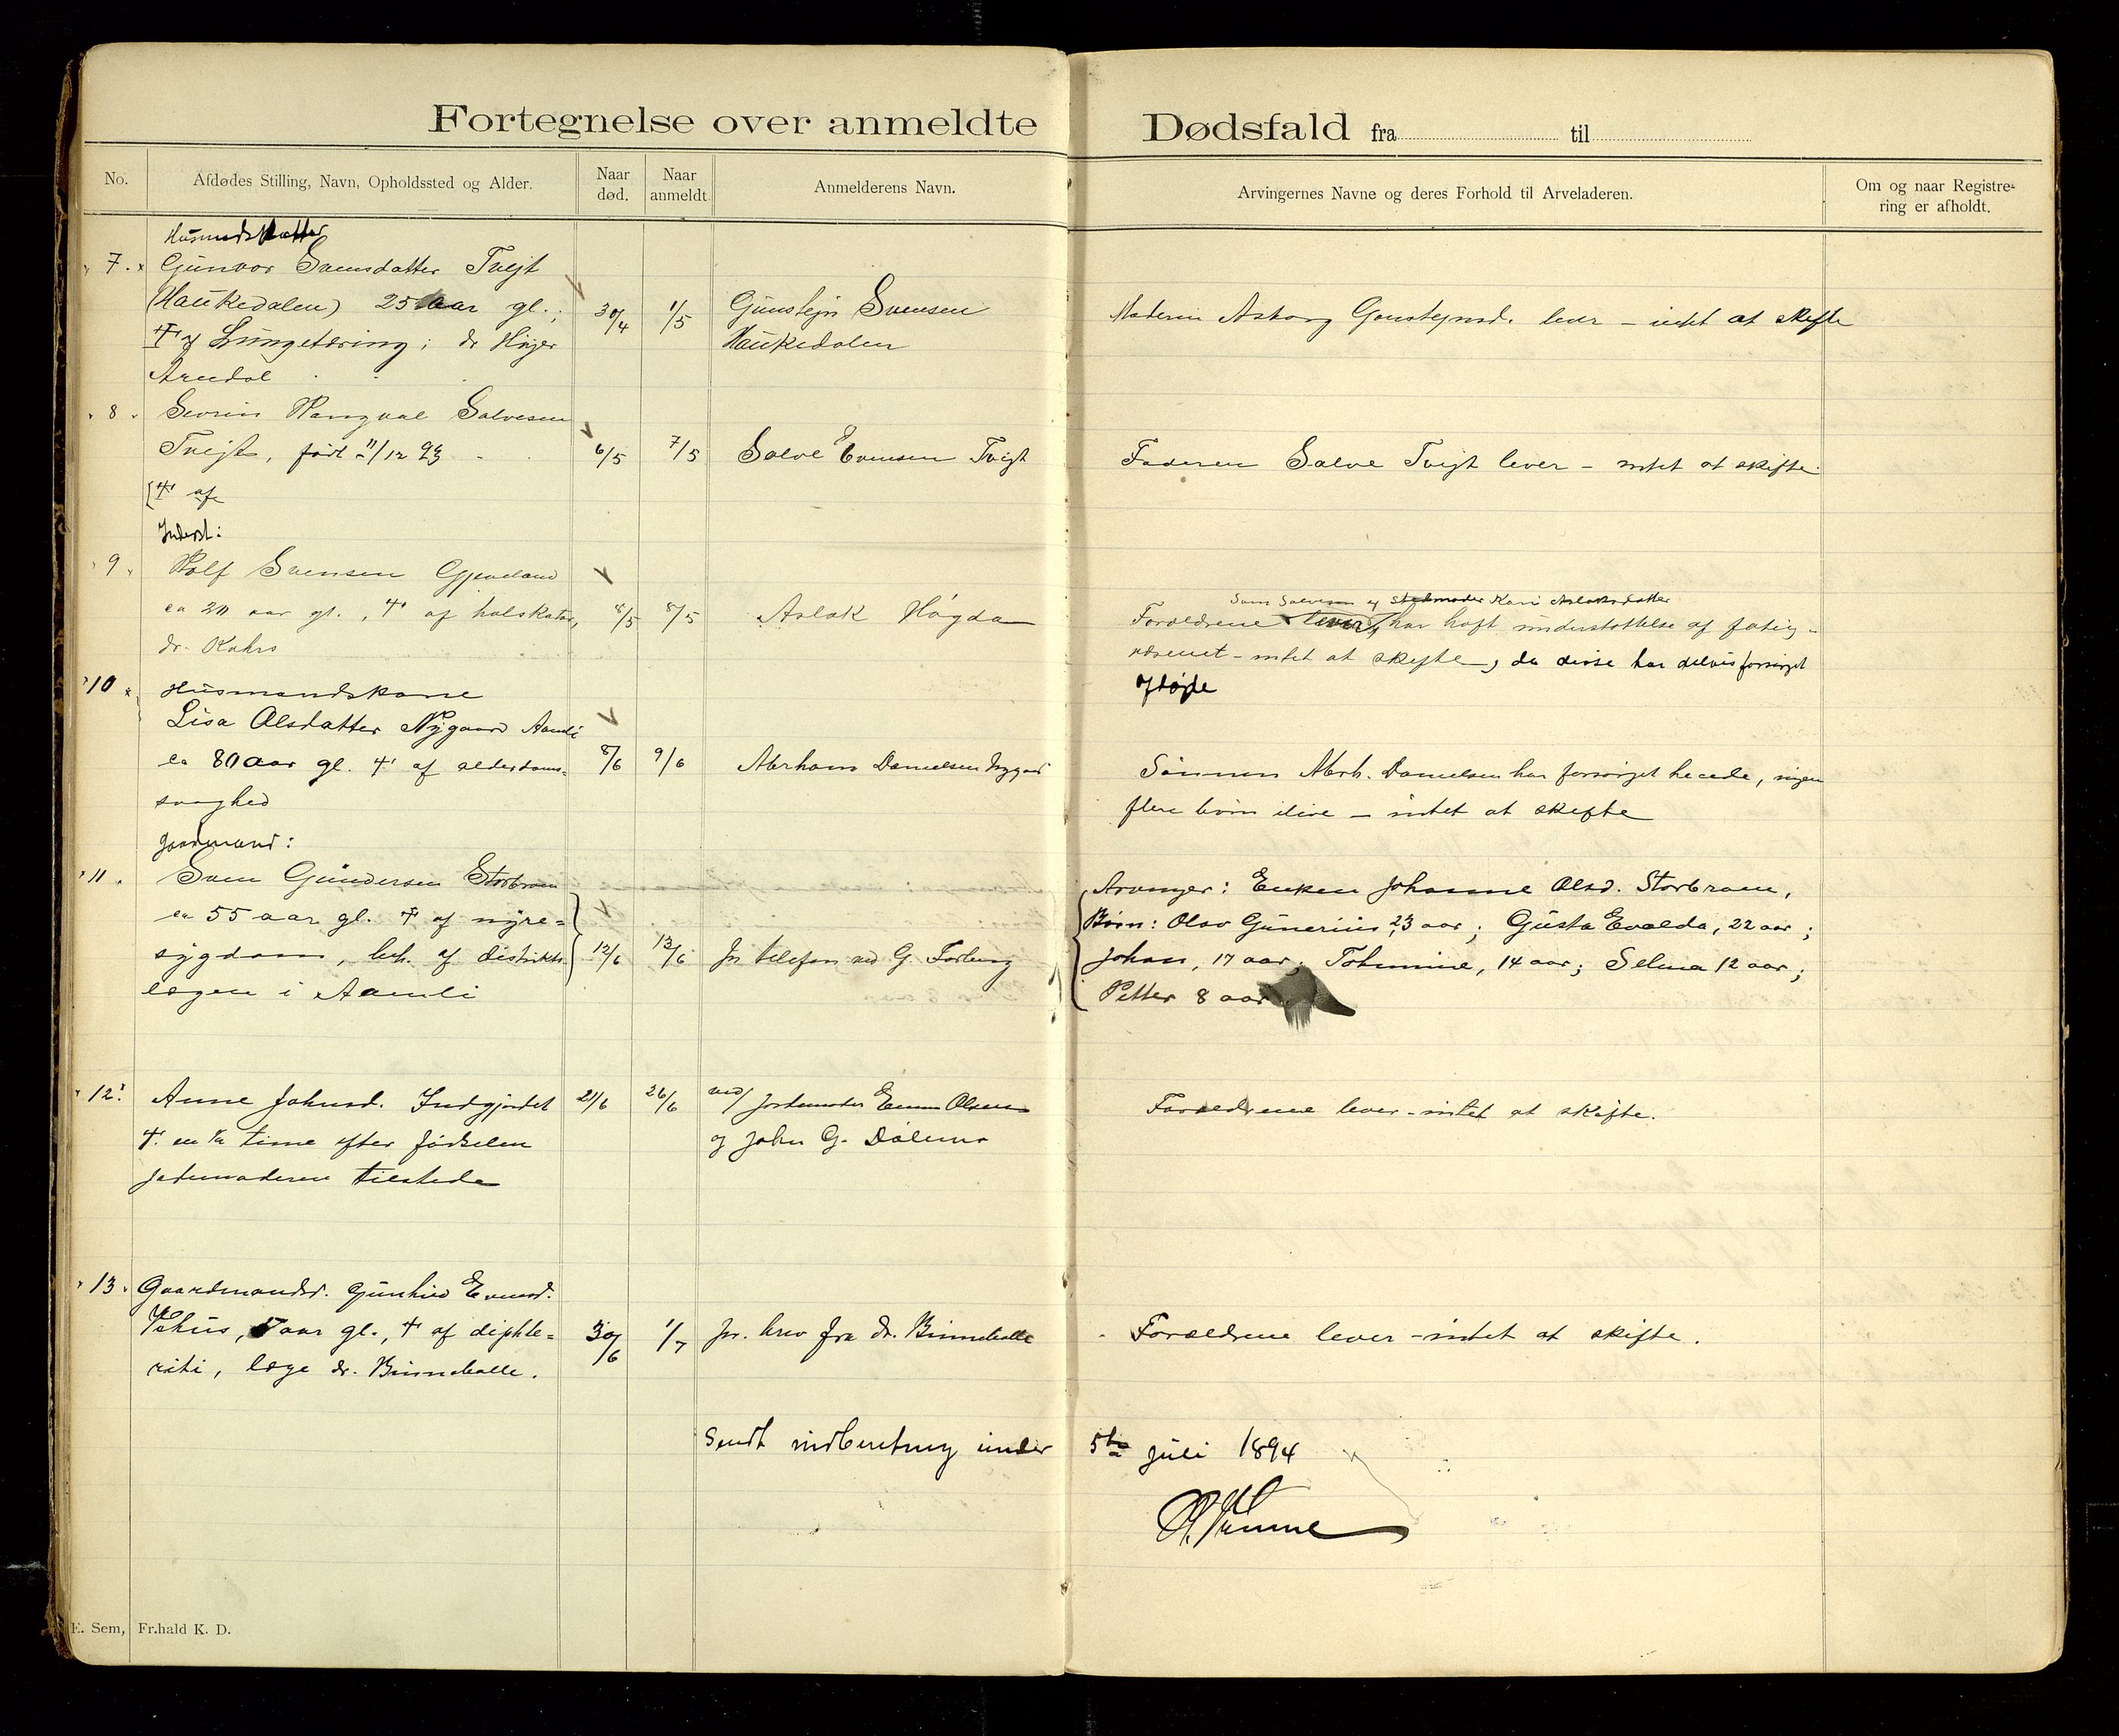 Fortegnelse over anmeldte Dødsfald fra til
No. Afdødes Stilling, Navn, Opholdssted og Alder. Naar død. Naar anmeldt. Anmelderens Navn. Arvingernes Navne og deres Forhold til Arveladeren. Om og naar Registrering er afholdt.
Husmandsdatter
7. Gunvor Svensdatter Tvejt
(Haukedalen) 25 aar gl.; 30/4 1/5 Gunstejn Svensen Moderen Asborg Gunstejnsd. lever - intet at skifte
† af Lungetæring; dr Høyer Haukedalen
Arendal
8. Severin Rangval Salvesen
Tvejt, født 11/12 93 6/5 7/5 Salve Evensen Tvejt Faderen Salve Tvejt lever - intet at skifte
† af
Inderst:
9. Rolf Svensen Gjeveland
Sven Salvesen og Stedmoder Kari Aslaksdatter
ca 20 aar gl., † af halskatar, 8/5 8/5 Aslak Høgda Forældrene lever, har haft understøttelse af fatig-
dr. Kahrs væsenet - intet at skifte, da disse har delvis forsørget
afdøde
10. Husmandskone
Lisa Olsdatter Nygaard Aamli
ca 80 aar gl. † af alderdoms- 8/6 9/6 Abrham Danielsen Nygaard Sønnen Abrh. Danielsen har forsørget hende, ingen
svaghed flere børn ilive - intet at skifte
Gaardmand:
11. Sven Gundersen Storbraue Arvinger: Enken Johanne Olsd. Storbraue,
ca 55 aar gl. † af nyre- Børn: Olav Gunerius, 23 aar; Gusta Evalda, 22 aar;
sygdom, beh. af distrikts- 12/6 13/6 Pr telefon ved G. Foslung Johan, 17 aar; Tomine, 14 aar; Selma 12 aar;
lægen i Aamli Petter 8 aar
12. Anne Johnsd. Indgjerdet 21/6 26/6 ved/ Jordemoder Emma Olsen Forældrene lever - intet at skifte.
†. en 1/2 time efter fødselen og John G. Dølemo
Jordemoderen tilstede
13. Gaardmandsd. Gunhild Evensd.
Vehus, 5 aar gl., † af difhte- 30/6 1/7 pr. brev fra dr. Binneballe Forældrene lever - intet at skifte.
riti, læge dr. Binneballe.
Sendt indberetning under 5te juli 1894
E. Sem, Fr.hald K. D.